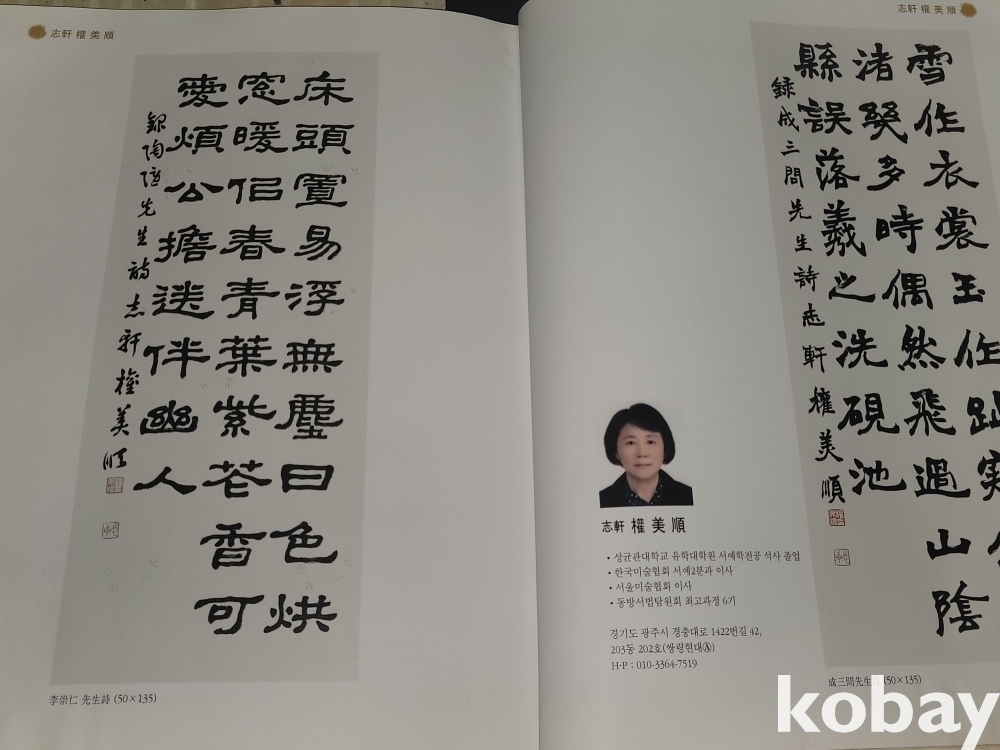 志軒 權美順
床頭置易浮無塵日色烘
窓暖侣春青葉紫花香可
愛煩公擔送伴幽人
錄陶隱先生詩志軒權美順
李崇仁 先生詩 (50×135)
志軒 權美順
雪作衣裳玉作趾
渚幾多時偶然飛過山陰
縣誤落羲之洗硯池
錄成三問先生詩志軒權美順
志軒 權美順
• 성균관대학교 유학대학원 서예학전공 석사 졸업
• 한국미술협회 서예2분과 이사
• 서울미술협회 이사
• 동방서법탐원회 최고과정 6기
경기도 광주시 경충대로 1422번길 42,
203동 202호(쌍령현대Ⓐ)
H·P : 010-3364-7519
成三問先生 (50×135)
kobay